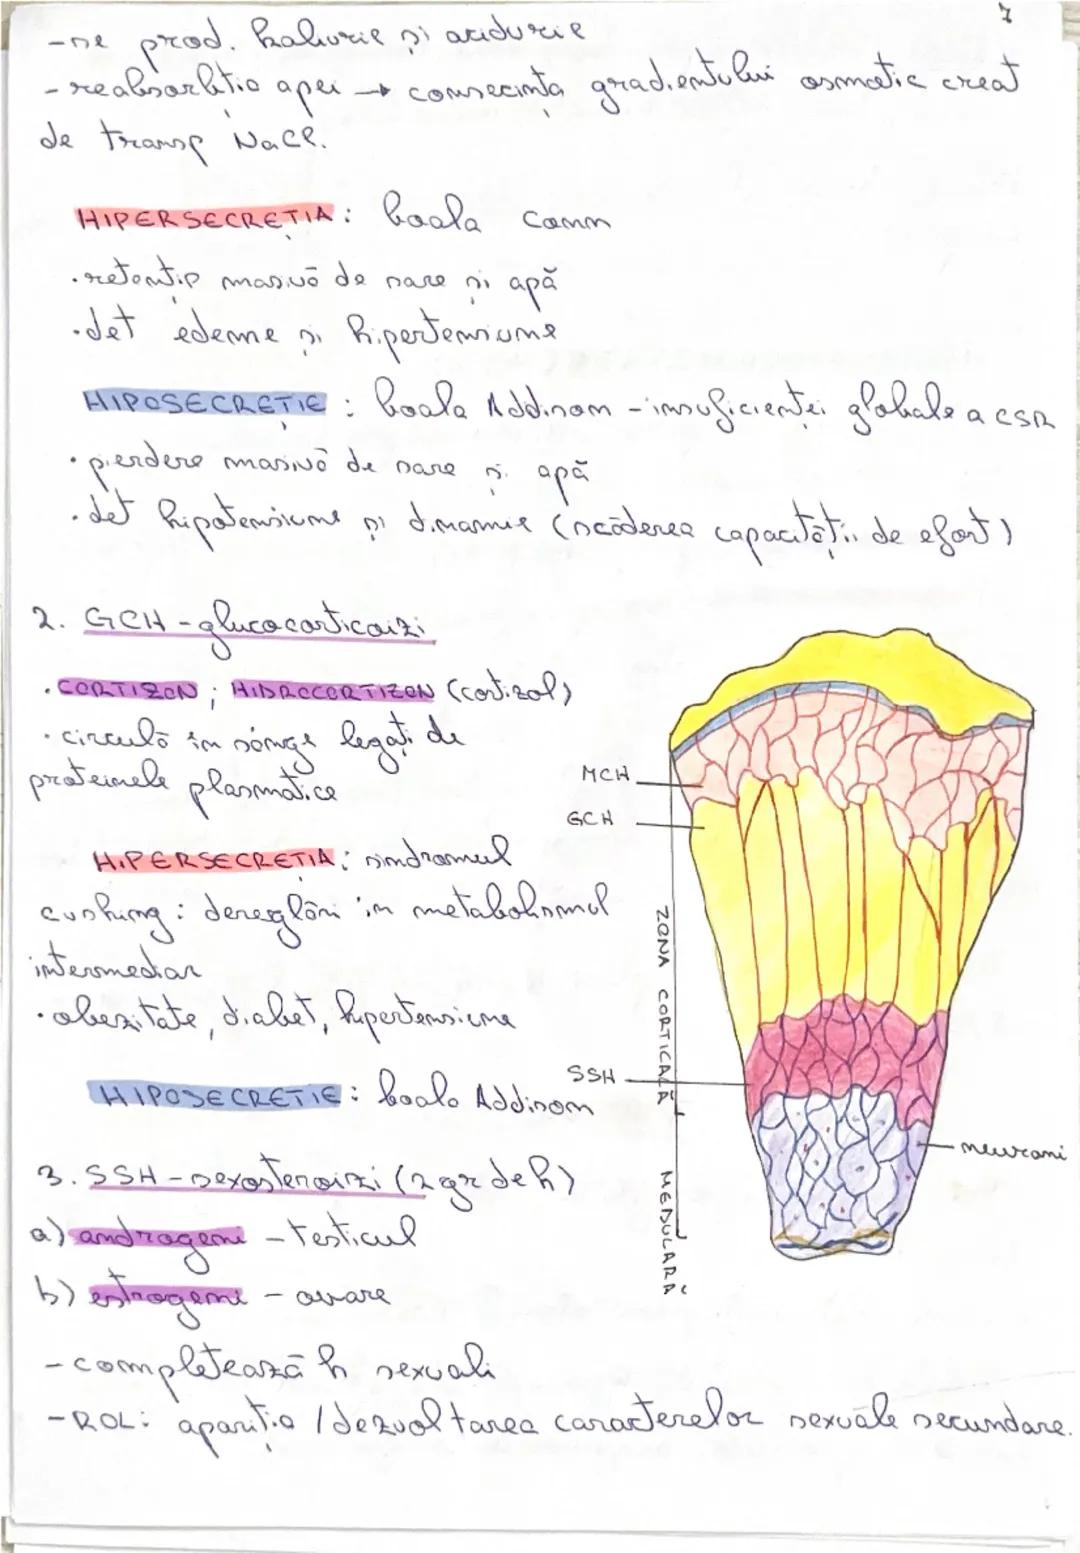 7
-se prod. kaliurie și acidurie
-reabsorbția apei → consecința gradientului osmotic creat
de transp NaCl.
HIPERSECREȚIA: boala Conn
·retenție masivă de sare și apă
·det edeme și hipertensiune
HIPOSECREȚIE: boala Addison -insuficienței globale a CSR
·pierdere masivă de sare și apă
·det hipotensiune și dinamie (scăderea capacității de efort)
2. GCH -glucocorticoizi
·CORTIZON; HIDROCORTIZON (cortizol)
·circulă în sânge legați de
proteinele plasmatice
HIPERSECREȚIA: sindromul
cushing: dereglări în metabolismul
intermediar
·obezitate, diabet, hipertensiune
HIPOSECREȚIE: boala Addison
3. SSH -sexosteroizi (2 gr de h)
a) androgeni -testicul
b) estrogeni -ovare
-completează h sexuali
-ROL: apariția / dezvoltarea caracterelor sexuale secundare.
MCH
GCH
ZONA CORTICALĂ
SSH
neuroni
MEDULARĂ